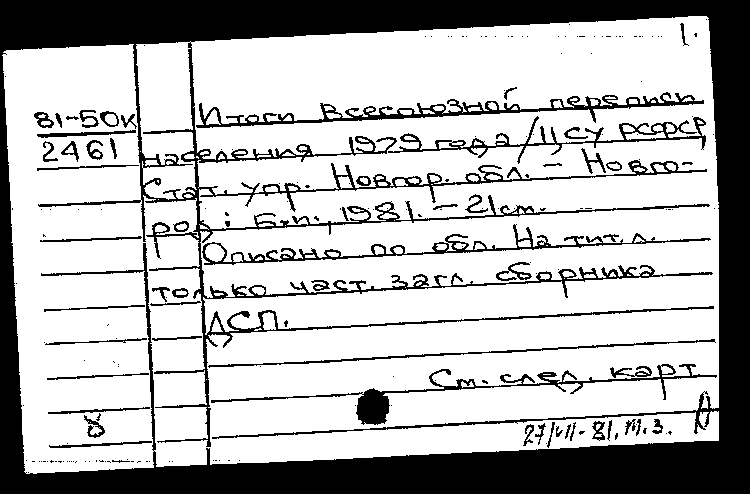 1.
81-50к Итоги Всесоюзной переписи
2461 населения 1979 года/ЦСУ РСФСР,
Стат. упр. Новгор. обл. - Новго-
род: Б.и., 1981. - 21см.
Описано по обл. На тит.л.
только част. загл. сборника
ДСП.
См. след. карт
8
27/VII-81. М.З.